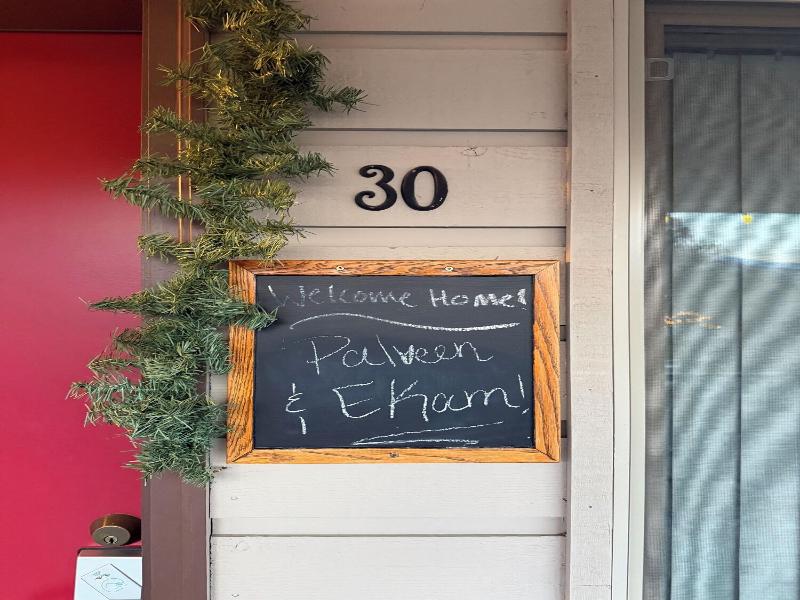 30
Welcome Home!
Palveen
& Ekam!